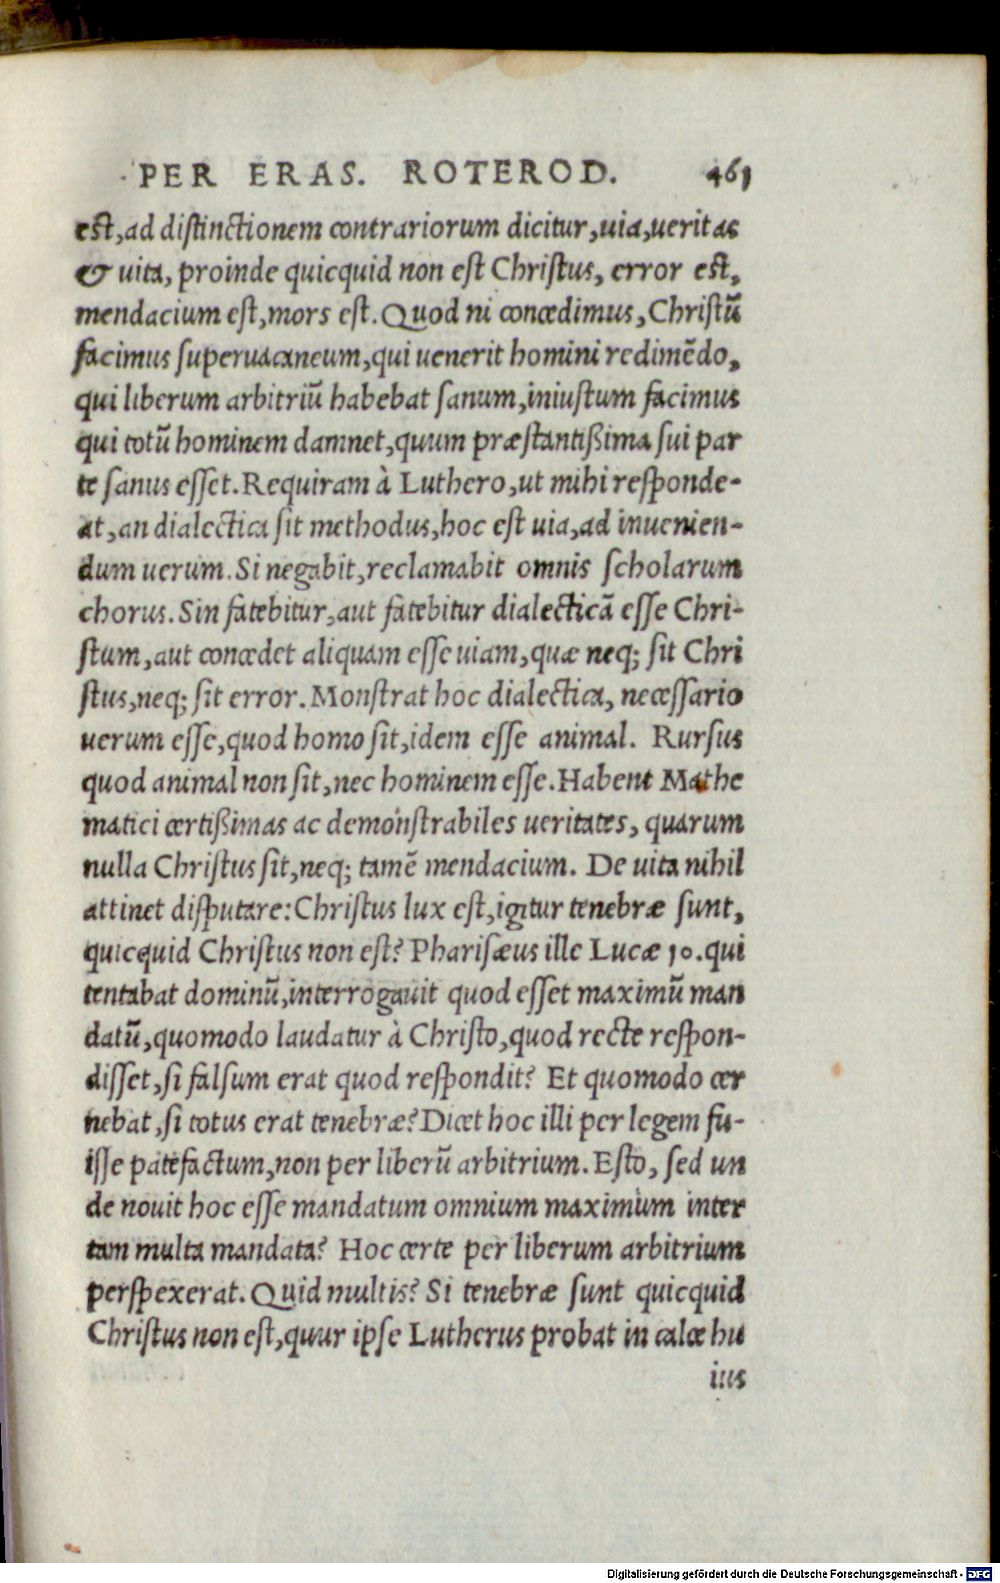 PER ERAS. ROTEROD. 461
est, ad distinctionem contrariorum dicitur, uia, ueritas
& uita, proinde quicquid non est Christus, error est,
mendacium est, mors est. Quod ni concedimus, Christū
facimus superuacaneum, qui uenerit homini redimēdo,
qui liberum arbitriū habebat sanum, iniustum facimus
qui totū hominem damnet, quum præstantißima sui par
te sanus esset. Requiram à Luthero, ut mihi responde-
at, an dialectica sit methodus, hoc est uia, ad inuenien-
dum uerum. Si negabit, reclamabit omnis scholarum
chorus. Sin fatebitur, aut fatebitur dialecticā esse Chri-
stum, aut concedet aliquam esse uiam, quæ neq; sit Chri
stus, neq; sit error. Monstrat hoc dialectica, necessario
uerum esse, quod homo sit, idem esse animal. Rursus
quod animal non sit, nec hominem esse. Habent Mathe
matici certißimas ac demonstrabiles ueritates, quarum
nulla Christus sit, neq; tamē mendacium. De uita nihil
attinet disputare: Christus lux est, igitur tenebræ sunt,
quicquid Christus non est? Pharisæus ille Lucæ 10. qui
tentabat dominū, interrogauit quod esset maximū man
datū, quomodo laudatur à Christo, quod recte respon-
disset, si falsum erat quod respondit? Et quomodo cer
nebat, si totus erat tenebræ? Dicet hoc illi per legem fu-
isse patefactum, non per liberū arbitrium. Esto, sed un
de nouit hoc esse mandatum omnium maximum inter
tam multa mandata? Hoc certe per liberum arbitrium
perspexerat. Quid multis? Si tenebræ sunt quicquid
Christus non est, quur ipse Lutherus probat in calce hu
ius
Digitalisierung gefördert durch die Deutsche Forschungsgemeinschaft - DFG